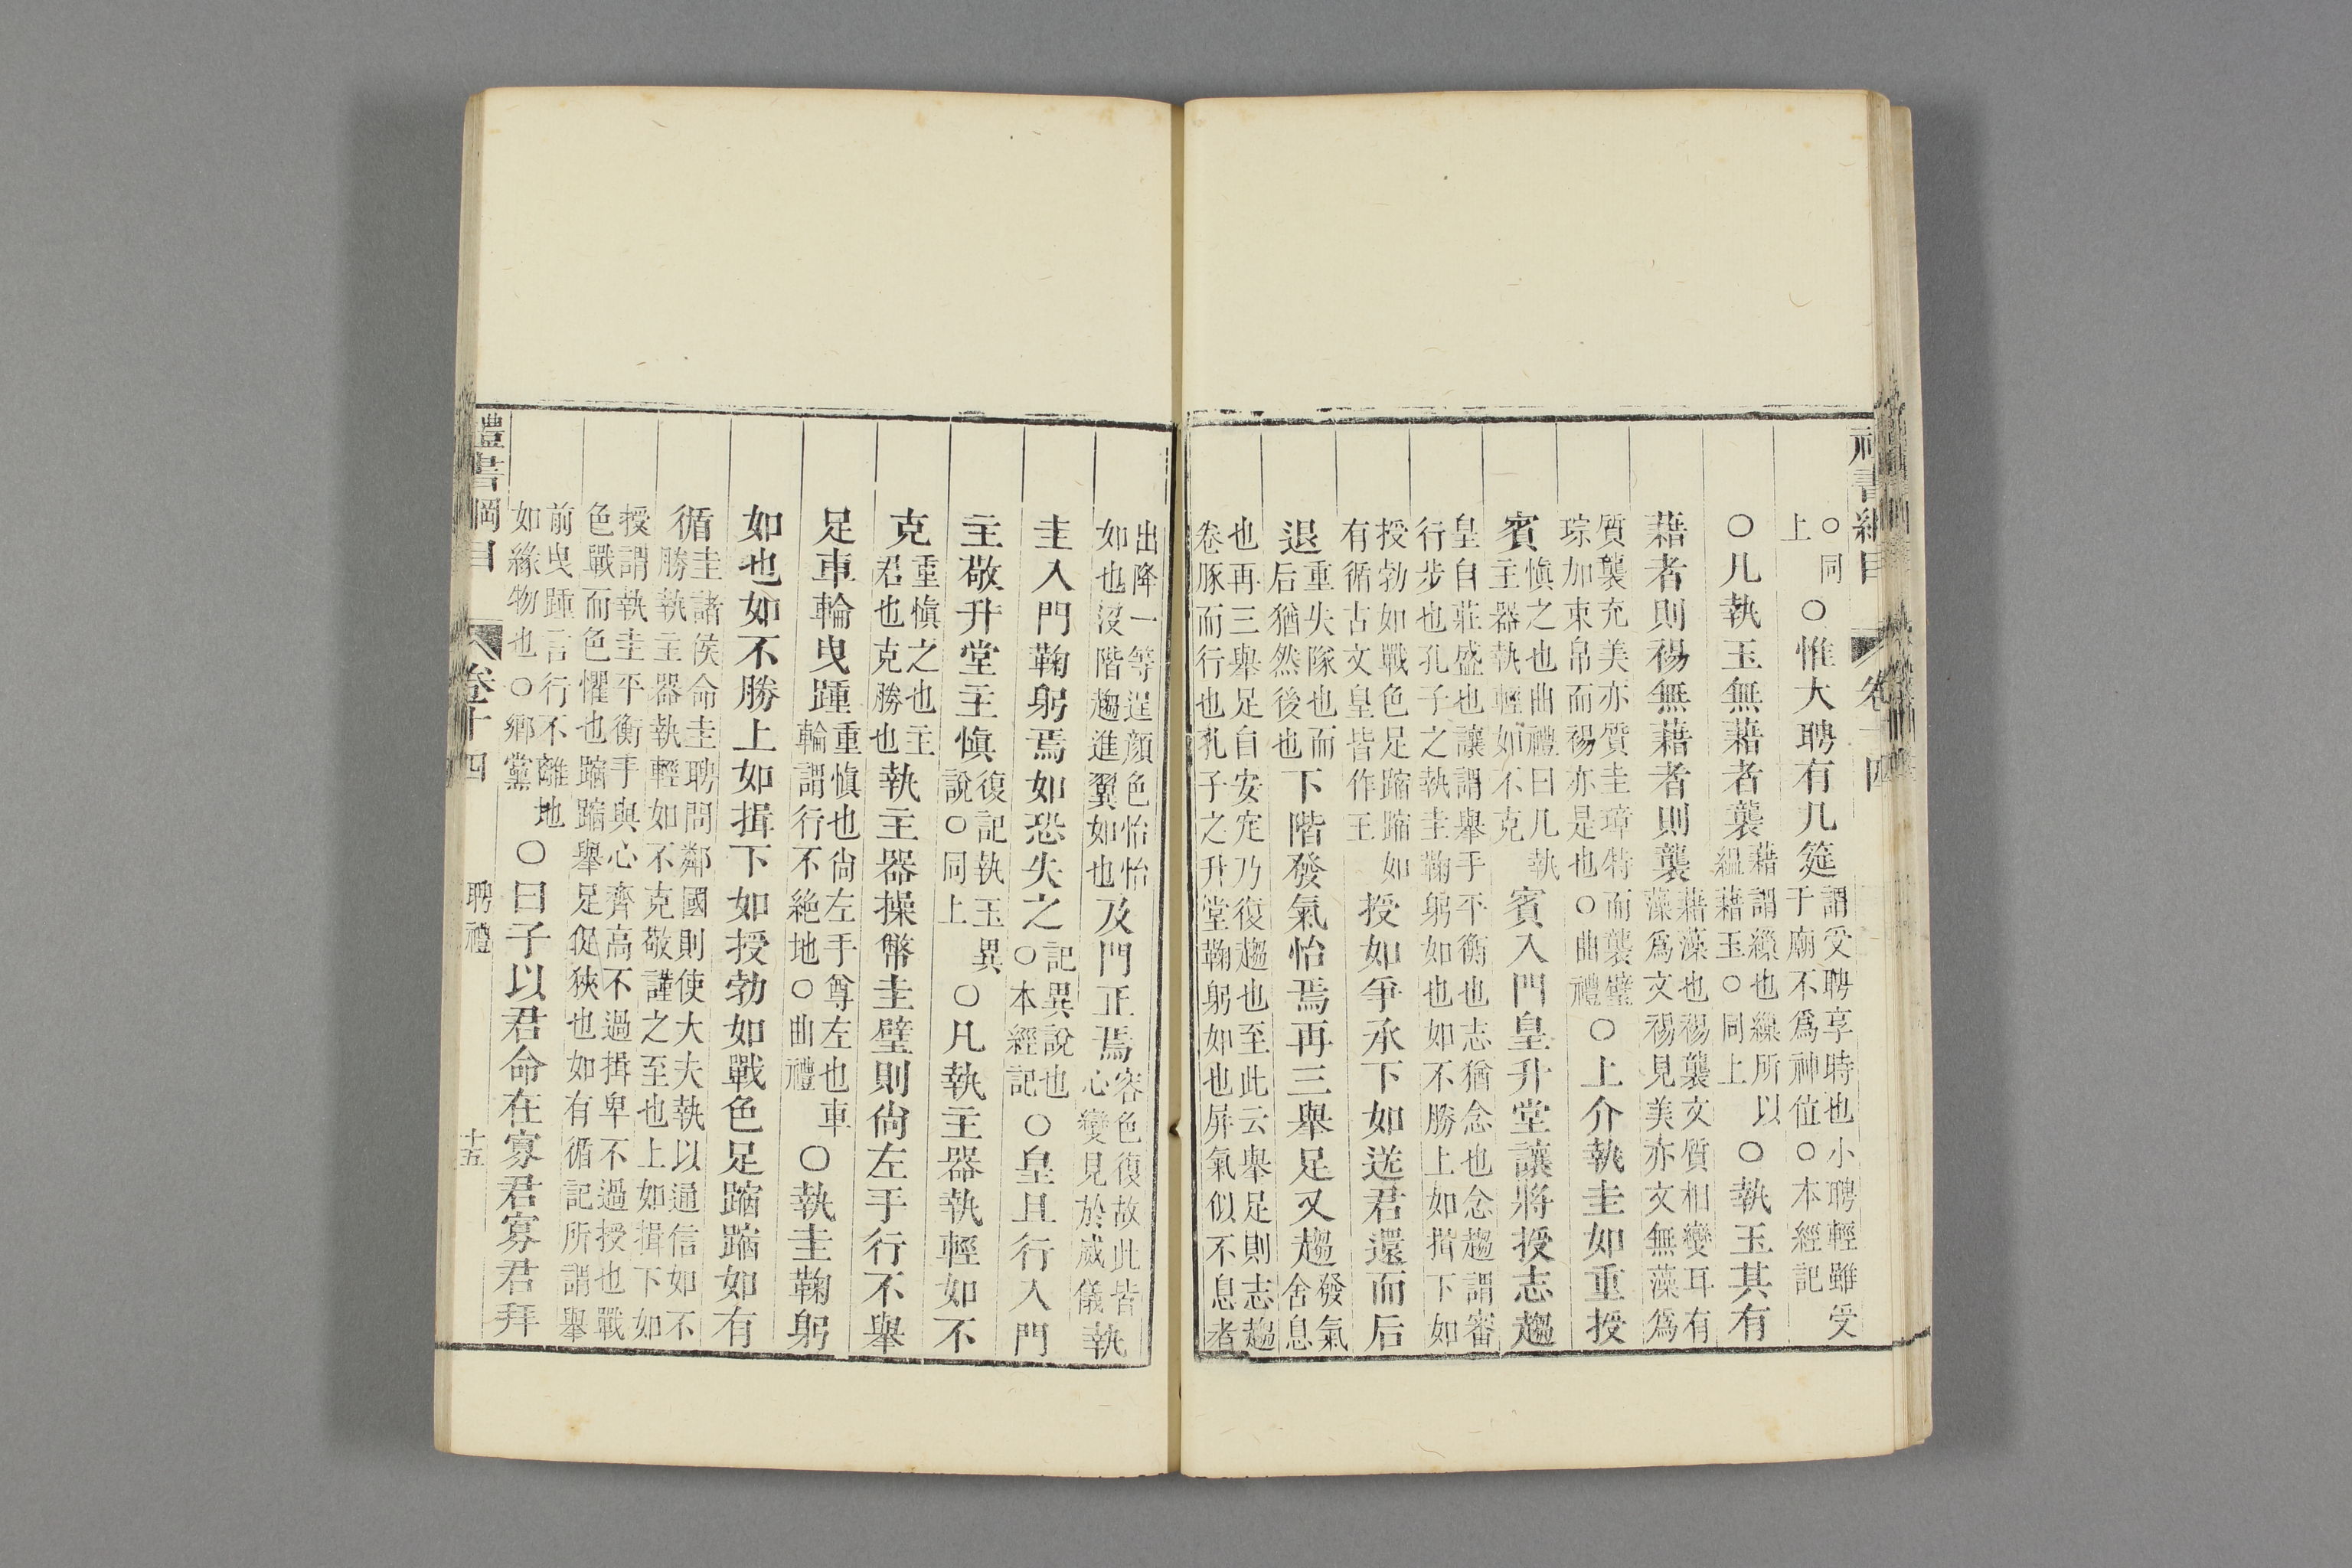 書綱目 卷十四
○同上○惟大聘有几筵謂受聘享時也小聘輕雖受于廟不爲神位○本經記
○凡執玉無藉者襲藉謂繅也繅所以縕藉玉○同上○執玉其有
藉者則裼無藉者則襲藉藻也裼襲文質相變耳有藻爲文裼見美亦文無藻爲
質襲充美亦質圭璋特而襲璧琮加束帛而裼亦是也○曲禮○上介執圭如重授
賓愼之也曲禮曰凡執主器執輕如不克賓入門皇升堂讓將授志趨
皇自莊盛也讓謂舉手平衡也志猶念也念趨謂審行步也孔子之執圭鞠躬如也如不勝上如揖下如
授勃如戰色足蹜蹜如有循古文皇皆作王授如爭承下如送君還而后
退重失隊也而后猶然後也下階發氣怡焉再三舉足又趨發氣舍息
也再三舉足自安定乃復趨也至此云舉足則志趨卷豚而行也孔子之升堂鞠躬如也屏氣似不息者
出降一等逞顔色怡怡如也沒階趨進翼如也及門正焉容色復故此皆心變見於威儀執
圭入門鞠躬焉如恐失之記異說也○本經記○皇且行入門
主敬升堂主愼復記執玉異說○同上○凡執主器執輕如不
克重愼之也主君也克勝也執主器操幣圭璧則尙左手行不舉
足車輪曳踵重愼也尙左手尊左也車輪謂行不絶地○曲禮○執圭鞠躬
如也如不勝上如揖下如授勃如戰色足蹜蹜如有
循圭諸侯命圭聘問鄰國則使大夫執以通信如不勝執主器執輕如不克敬謹之至也上如揖下如
授謂執圭平衡手與心齊高不過揖卑不過授也戰色戰而色懼也蹜蹜舉足促狹也如有循記所謂舉
前曳踵言行不離地如緣物也○鄕黨○曰子以君命在寡君寡君拜
禮書綱目 卷十四 聘禮 十五